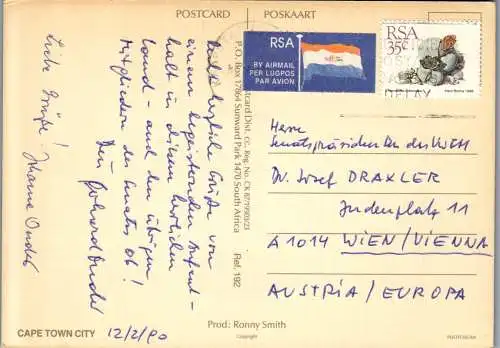 POSTCARD POSKAART
RSA
BY AIRMAIL
PER LUGPOS
PAR AVION
RSA
35c
Und herzliche Grüße von
einem begeisterten Aufent-
halt in diesem herrlichen
Land - und den übrigen
Mitgliedern des Senates ob!
Dein Gerhard
Liebe Grüße!
Johanna
CAPE TOWN CITY 12/2/90
Postcard Dist. cc. Reg. No. CK 87/19503/23
P.O. Box 17864 Sunward Park 1470 South Africa
Ref. 192
Prod: Ronny Smith
Copyright
Herrn
Senatspräsidenten des VwGH
Dr. Josef DRAXLER
Judenplatz 11
A 1014 WIEN/VIENNA
AUSTRIA / EUROPA